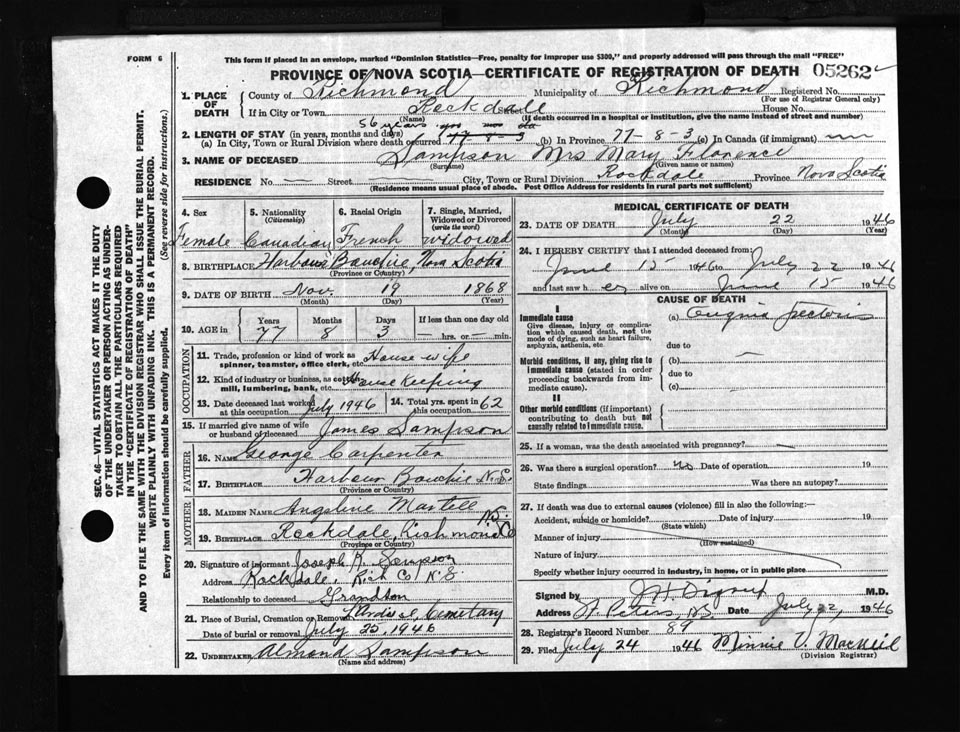 FORM 6
This form if placed in an envelope, marked "Dominion Statistics—Free, penalty for improper use $300," and properly addressed will pass through the mail "FREE"
PROVINCE OF NOVA SCOTIA—CERTIFICATE OF REGISTRATION OF DEATH 05262
1. PLACE OF DEATH
County of Richmond Municipality of Richmond Registered No.
(For use of Registrar General only)
If in City or Town Rockdale House No.
(Name) (If death occurred in a hospital or institution, give the name instead of street and number)
2. LENGTH OF STAY (in years, months and days) 56 years
(a) In City, Town or Rural Division where death occurred 77-8-3 (b) In Province 77-8-3 (c) In Canada (if immigrant)
3. NAME OF DECEASED Sampson Mrs Mary Florence
(Surname) (Given name or names)
RESIDENCE No. — Street City, Town or Rural Division Rockdale Province Nova Scotia
(Residence means usual place of abode. Post Office Address for residents in rural parts not sufficient)
4. Sex Female
5. Nationality (Citizenship) Canadian
6. Racial Origin French
7. Single, Married, Widowed or Divorced (write the word) widowed
8. BIRTHPLACE Harbour Bouchie, Nova Scotia
(Province or Country)
9. DATE OF BIRTH Nov. 19 1868
(Month) (Day) (Year)
10. AGE in Years 77 Months 8 Days 3 If less than one day old — hrs. or — min.
OCCUPATION
11. Trade, profession or kind of work as spinner, teamster, office clerk, etc. House-wife
12. Kind of industry or business, as cotton mill, lumbering, bank, etc. House Keeping
13. Date deceased last worked at this occupation July 1946
14. Total yrs. spent in this occupation 62
15. If married give name of wife or husband of deceased James Sampson
FATHER
16. NAME George Carpenter
17. BIRTHPLACE Harbour Bouchie N.S.
(Province or Country)
MOTHER
18. MAIDEN NAME Angeline Martell
19. BIRTHPLACE Rockdale, Richmond Co N.S.
(Province or Country)
20. Signature of informant Joseph K. Sampson
Address Rockdale, Rich Co N.S
Relationship to deceased Grandson
21. Place of Burial, Cremation or Removal Cemetary
Date of burial or removal July 25, 1946
22. UNDERTAKER Almond Sampson
(Name and address)
MEDICAL CERTIFICATE OF DEATH
23. DATE OF DEATH July 22 1946
(Month) (Day) (Year)
24. I HEREBY CERTIFY that I attended deceased from:
June 15 1946 to July 22 1946
and last saw her alive on June 15 1946
CAUSE OF DEATH
I
Immediate cause
Give disease, injury or complication which caused death, not the mode of dying, such as heart failure, asphyxia, asthenia, etc.
(a) Angina Pectoris
due to
Morbid conditions, if any, giving rise to immediate cause (stated in order proceeding backwards from immediate cause).
(b) —
due to
(c)
II
Other morbid conditions (if important) contributing to death but not causally related to immediate cause.
25. If a woman, was the death associated with pregnancy? —
26. Was there a surgical operation? no Date of operation 19
State findings Was there an autopsy?
27. If death was due to external causes (violence) fill in also the following:
Accident, suicide or homicide? Date of injury 19
(State which)
Manner of injury
(How sustained)
Nature of injury
Specify whether injury occurred in industry, in home, or in public place
Signed by M.D.
Address St. Peters N.S Date July 22, 1946
28. Registrar's Record Number 89
29. Filed July 24 1946 Minnie V. MacNeil
(Division Registrar)
SEC. 46—VITAL STATISTICS ACT MAKES IT THE DUTY
OF THE UNDERTAKER OR PERSON ACTING AS UNDERTAKER
TO OBTAIN ALL THE PARTICULARS REQUIRED
IN THE "CERTIFICATE OF REGISTRATION OF DEATH"
AND TO FILE THE SAME WITH THE DIVISION REGISTRAR WHO SHALL ISSUE THE BURIAL PERMIT.
WRITE PLAINLY WITH UNFADING INK. THIS IS A PERMANENT RECORD.
Every item of information should be carefully supplied. (See reverse side for instructions.)